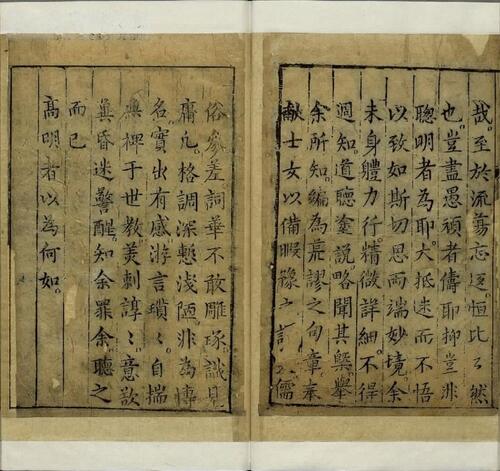 哉。至於流蕩忘返。恒比比然
也。豈盡愚頑者儔耶。抑豈非
聰明者為耶。大抵迷而不悟
以致如斯。切思雨端妙境。余
未身體力行。精微詳細。不得
週知。道聽塗說。略聞其槩。舉
余所知。編為荒謬之句章。奉
獻士女。以備暇豫之
俗參差。詞華不敢雕琢。識見
庸凡。格調深慙淺陋。非為博
名。實出有感。游言瑣瑣。自揣
無裨于世教。美刺諄諄。意欲
冀昏迷警醒。知余罪余。聽之
而已
高明者以為何如。